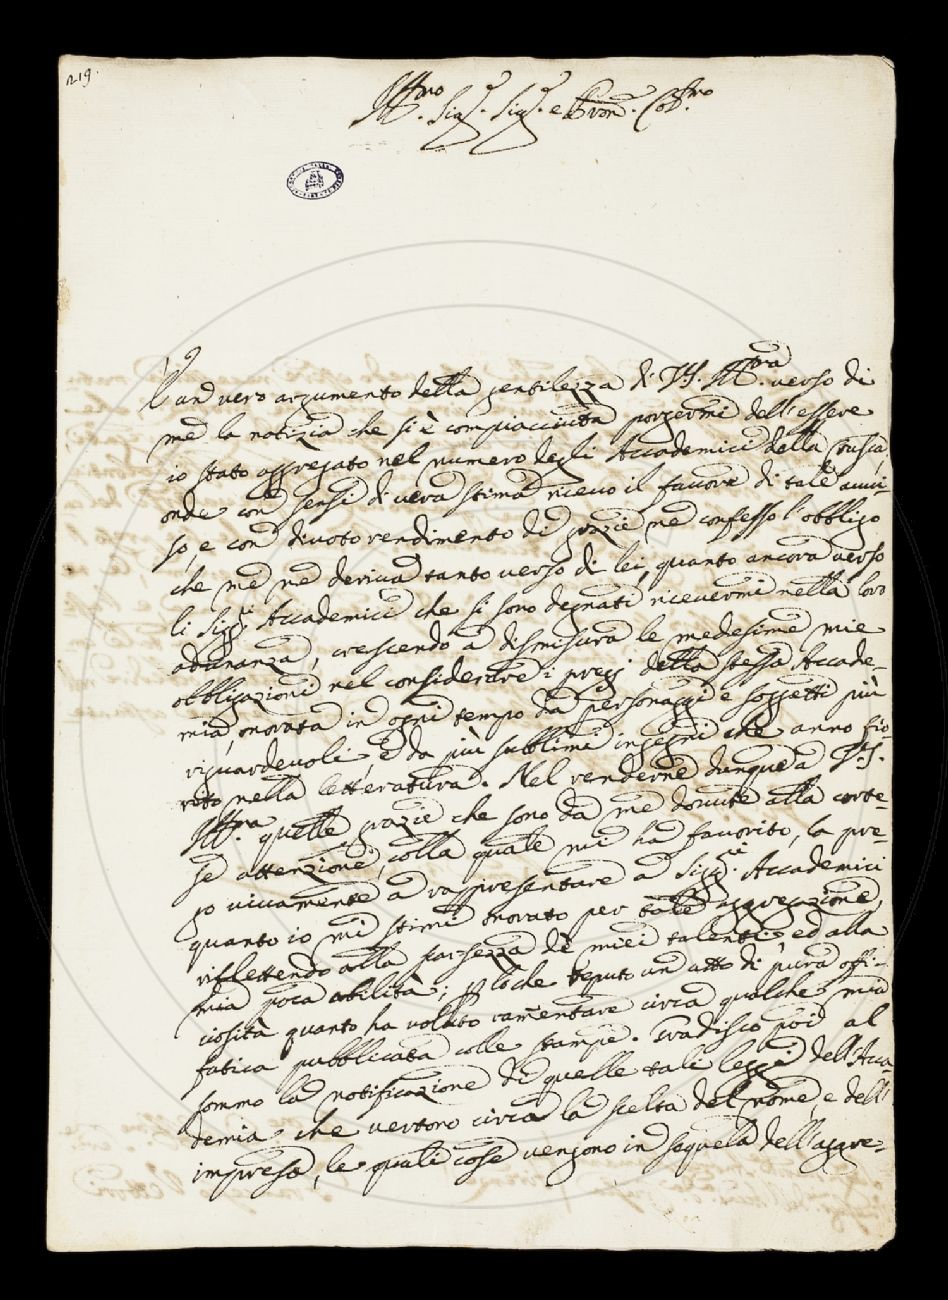 219.
Ill.mo Sig.r Sig.r e Pron. Col.mo
È un vero argumento della gentilezza di V.S. Ill.ma verso di
me la notizia che si è compiacciuta porgermi dell'essere
io stato aggregato nel numero degli Accademici della Crusca,
onde con sensi di vera stima ricevo il favore di tale avvi-
so, e con divoto rendimento di grazie ne confesso l'obbligo
che me ne deriva tanto verso di lei, quanto ancora verso
li Sigg.ri Accademici che si sono degnati ricevermi nella loro
adunanza, crescendo a dismisura le medesime mie
obbligazioni nel considerare i pregj della stessa Accade-
mia, onorata in ogni tempo da personaggi e soggetti più
riguardevoli e da più sublimi ingegni che anno fio-
rito nella letteratura. Nel renderne dunque a V.S.
Ill.ma quelle grazie che sono da me dovute alla corte-
se attenzione, colla quale mi ha favorito, la pre-
go vivamente a rappresentare a Sigg.ri Accademici
quanto io mi stimi onorato per tale aggregazione,
riflettendo alla scarsezza de miei talenti, ed alla
mia poca abilità; lo che reputo un atto di pura offi-
ciosità quanto ha voluto ramentare circa qualche mia
fatica pubblicata colle stampe. Gradisco poi al
sommo la notificazione di quelle tali leggi dell'Acca-
demia che vertono circa la scelta del nome, e dell'
impresa, le quali cose vengono in sequela dell'aggre-